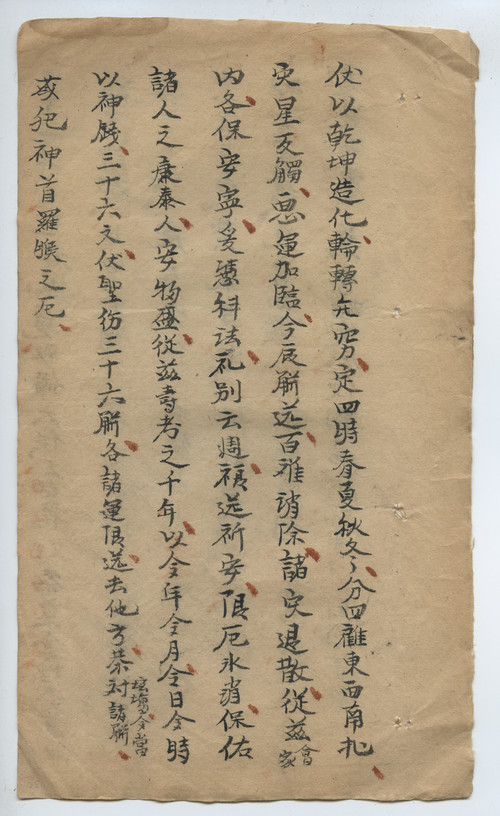 伏以乾坤造化輪轉無窮定四時春夏秋冬々分四維東西南北
灾星互觸惡運加臨今辰餅送百难消除諸灾退散從兹會家
内各保安寧爰慿科法礼别云週禎送祈安限厄永消保佑
諸人之康泰人安物盛從兹壽考之千年以今年今月今日今時
以神餞三十六文伏聖傍三十六餅各諸運限送去他方恭對諸餅壇墠今當
或犯神首羅睺之厄